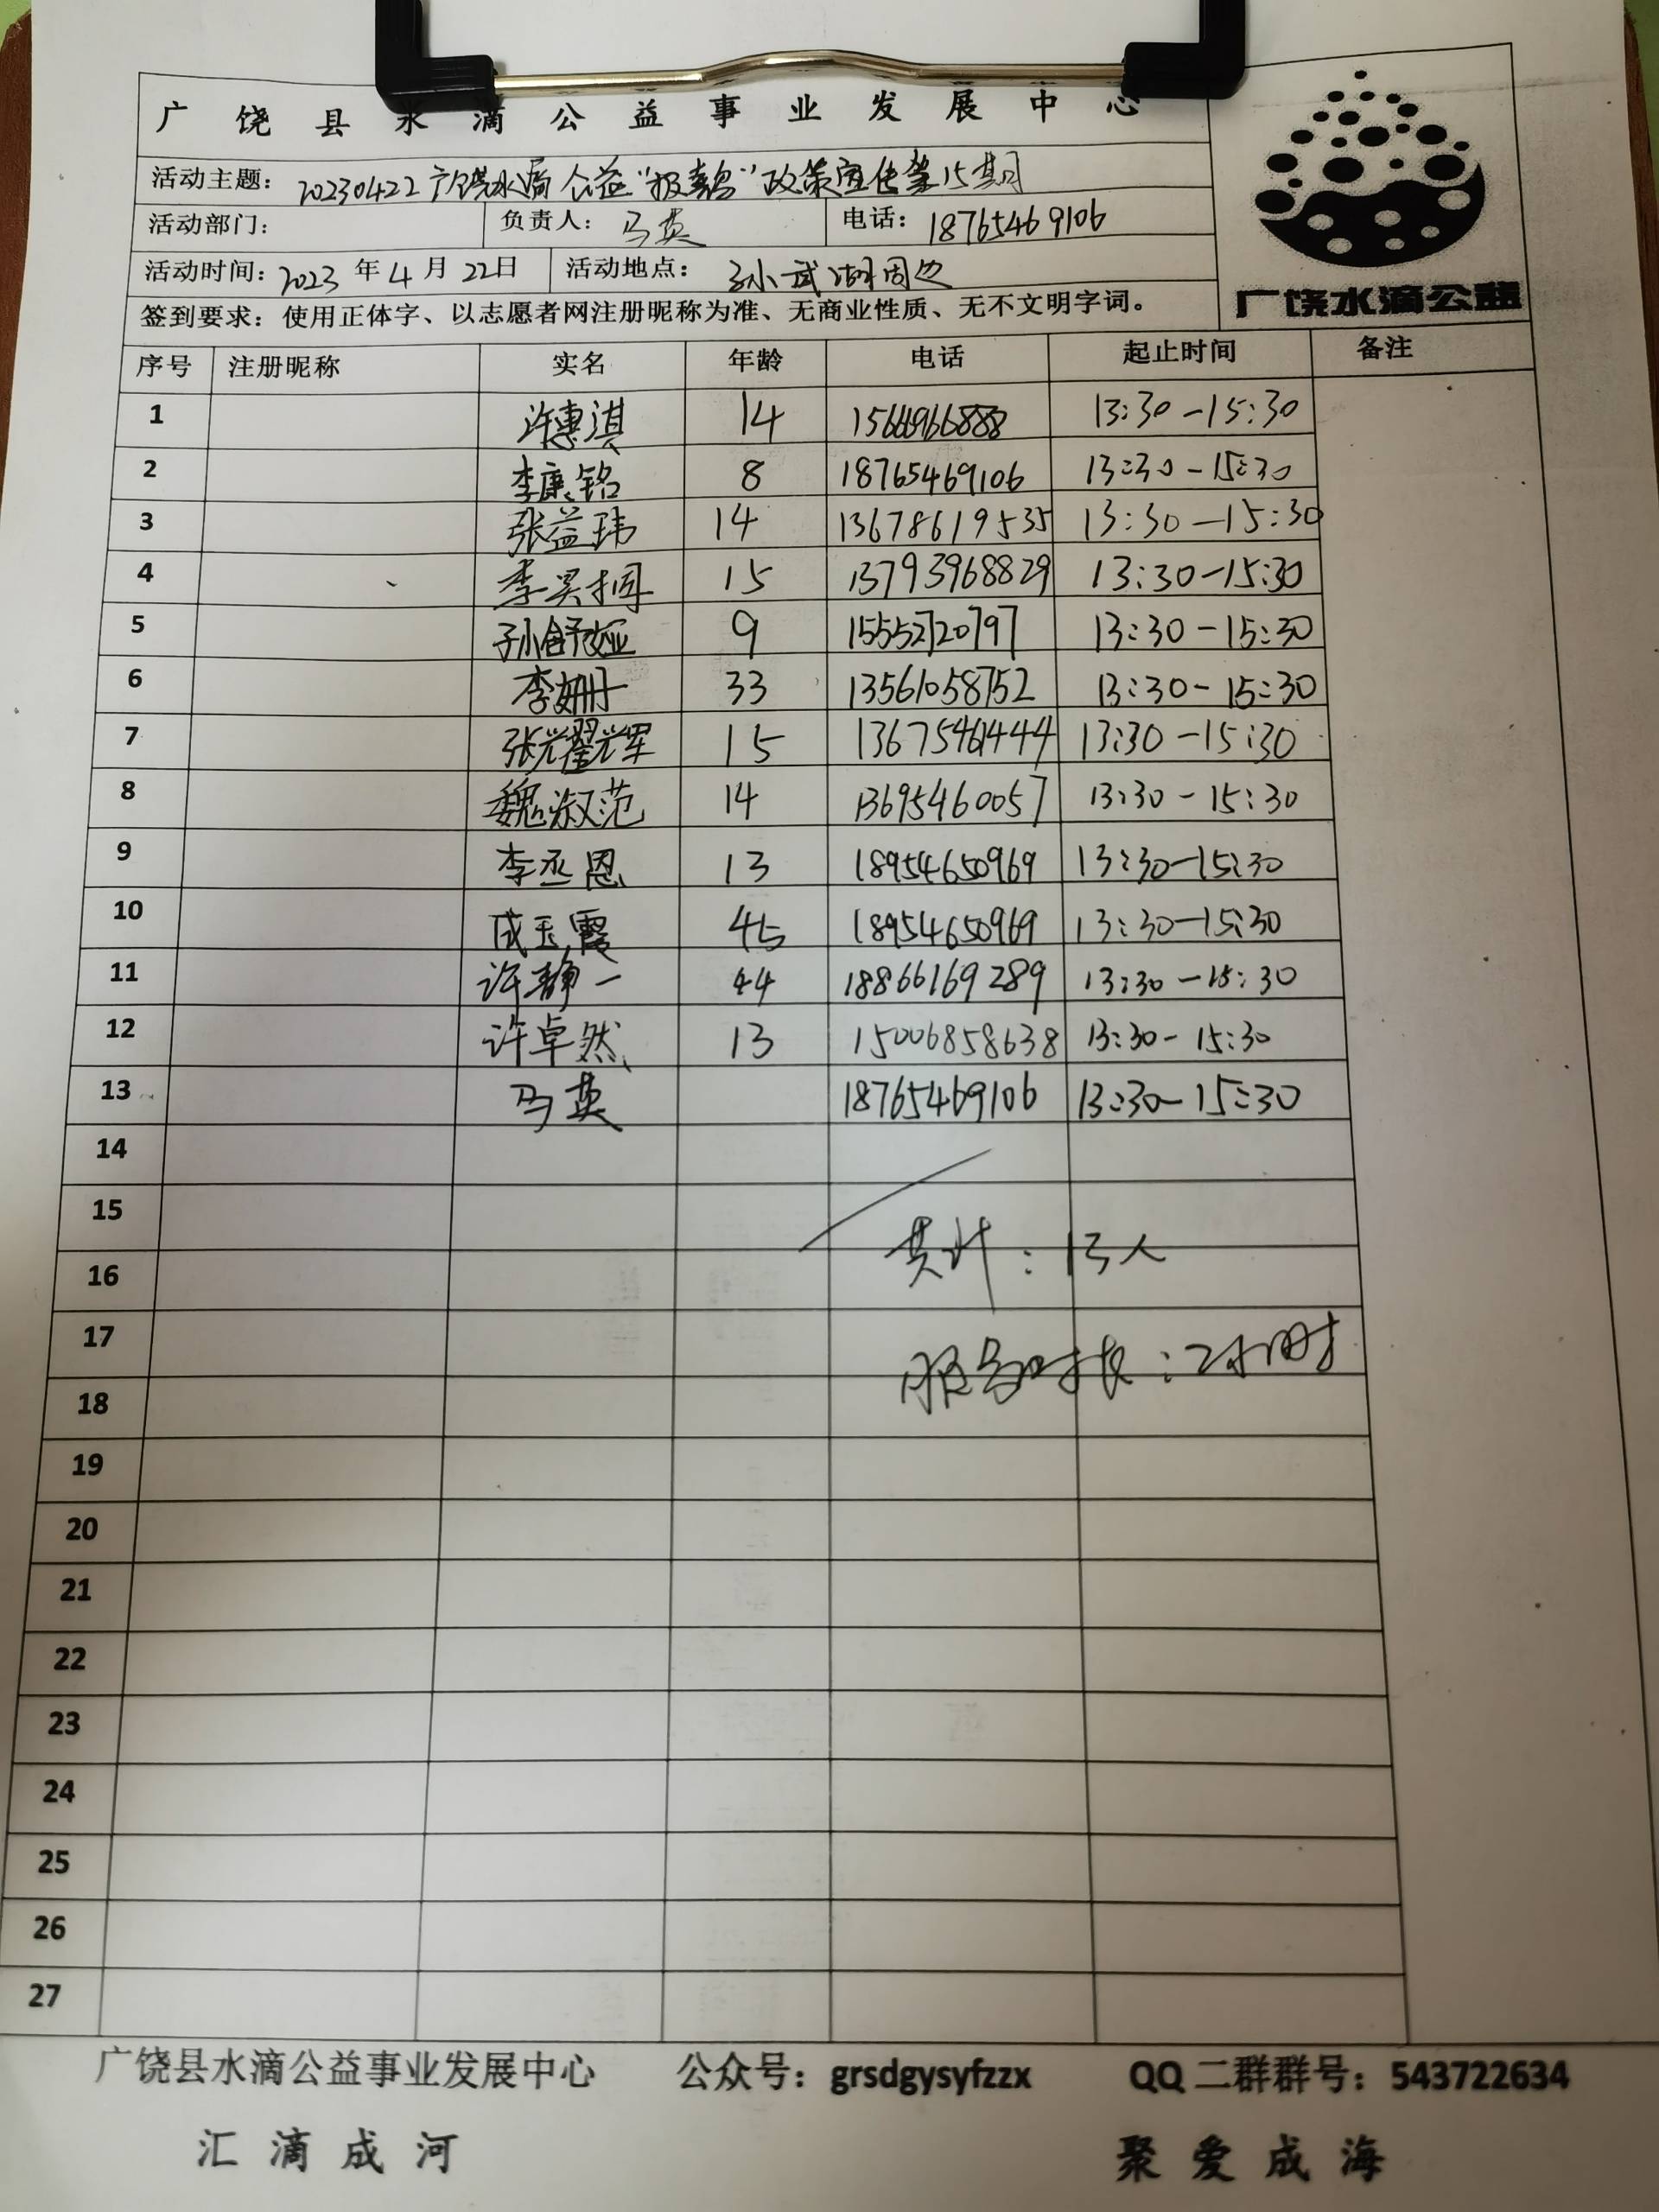 广饶县水滴公益事业发展中心
活动主题：20230422广饶水滴公益“扱毒宝”政策宣传第15期
活动部门： 负责人：马英 电话：18765469106
活动时间：2023年4月22日 活动地点：孙武湖周边
广饶水滴公益
签到要求：使用正体字、以志愿者网注册昵称为准、无商业性质、无不文明字词。
序号 注册昵称 实名 年龄 电话 起止时间 备注
1 许惠淇 14 13:30-15:30
2 李康铭 8 18765469106 13:30-15:30
3 张益玮 14 13678619535 13:30-15:30
4 李昊桐 15 13793968829 13:30-15:30
5 孙舒娅 9 15552720797 13:30-15:30
6 李姗 33 13561058752 13:30-15:30
7 张耀辉 15 13675461444 13:30-15:30
8 魏淑范 14 13695460057 13:30-15:30
9 李丞恩 13 18954650969 13:30-15:30
10 成玉霞 45 18954650969 13:30-15:30
11 许静一 44 18866169289 13:30-15:30
12 许卓然 13 15006858638 13:30-15:30
13 马英 18765469106 13:30-15:30
14
15
共计：13人
16
17
服务时长：2小时
18
19
20
21
22
23
24
25
26
27
广饶县水滴公益事业发展中心 公众号：grsdgysyfzzx QQ二群群号：543722634
汇滴成河 聚爱成海